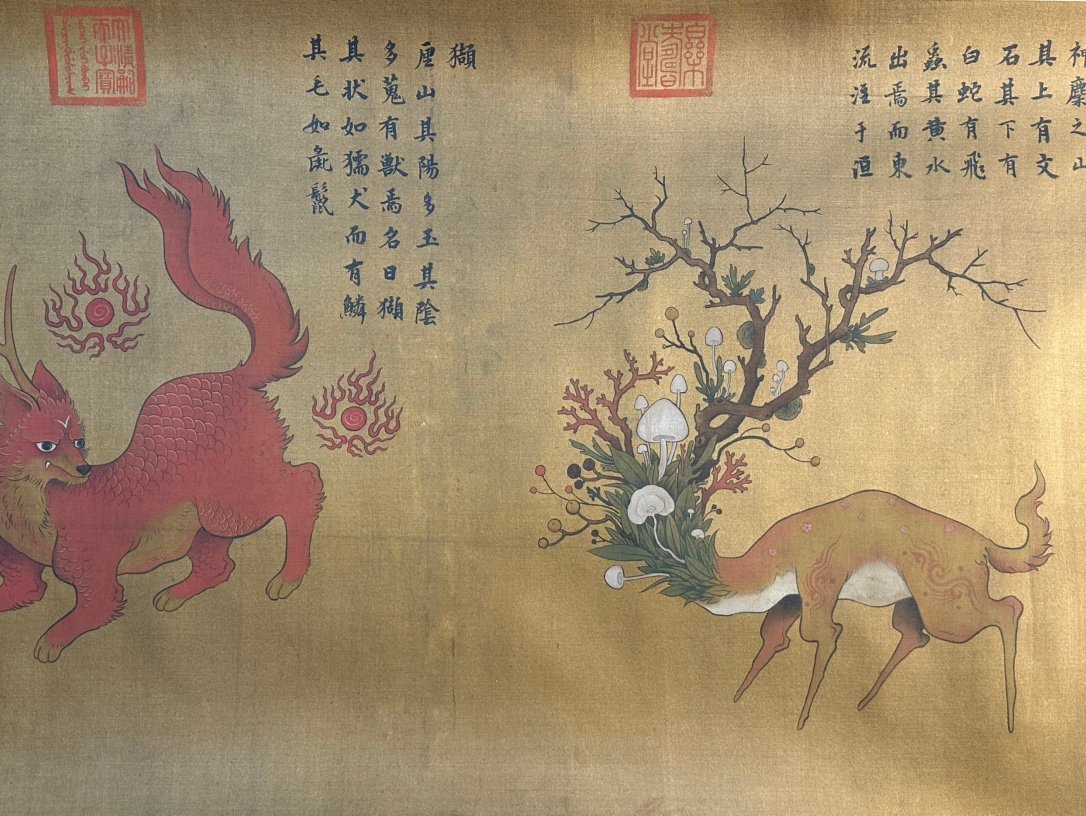 神麇之山
其上有文
石其下有
白蛇有飛
蟲其黄水
出焉而東
流注于洹
獺
厘山其陽多玉其陰
多蒐有獸焉名曰獺
其状如獳犬而有鱗
其毛如彘鬣